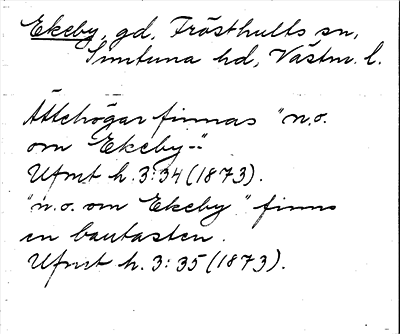 Ekeby, gd, Frösthults sn,
Simtuna hd, Västm. l.
Ättehögar finnas "n.o.
om Ekeby-"
Ufmt h. 3:34 (1873).
"n.o. om Ekeby" finns
en bautasten.
Ufmt h. 3:35 (1873).